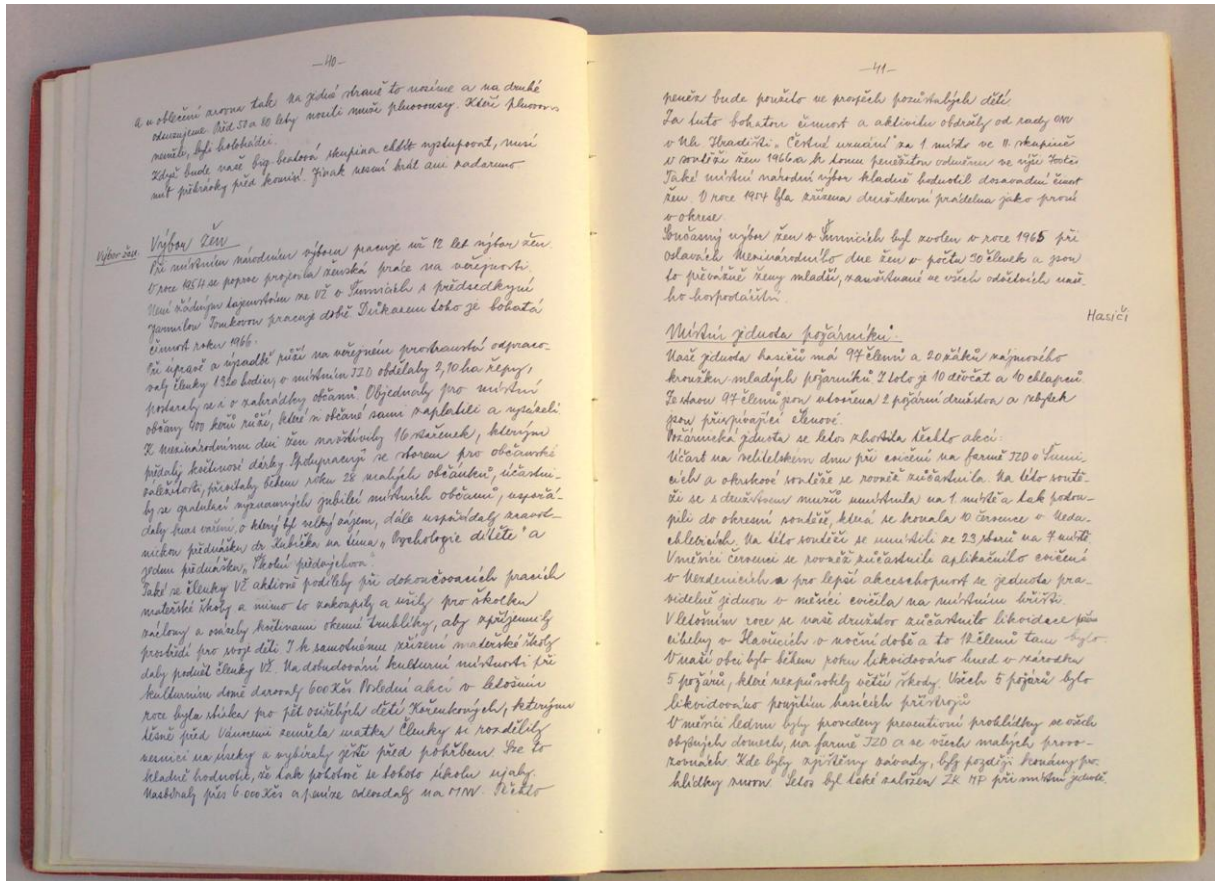 -40-
a u oblečení zrovna tak na jedné straně to nosíme a na druhé
odsuzujeme. Před 50 a 80 lety nosili muži plnovousy. Kteří plnovous
neměli, byli holobrádci.
Když bude naše big-beatová skupina chtít vystupovat, musí
mít přehrávky před komisí. Jinak nesmí hrát ani zadarmo
Výbor žen
Výbor žen
Při místním národním výboru pracuje už 12 let výbor žen.
V roce 1954 se poprve projevila ženská práce na veřejnosti.
Není žádným tajemstvím že VŽ v Šumicích s předsedkyní
Jarmilou Tomkovou pracuje dobře. Důkazem toho je bohatá
činnost roku 1966.
Při úpravě a výsadbě růží na veřejném prostranství odpraco-
valy členky 1320 hodin, v místním JZD obdělaly 2,10 ha řepy,
postaraly se i o zahrádky občanů. Objednaly pro místní
občany 400 keřů růží, které si občané sami zaplatili a vysázeli.
K mezinárodnímu dni žen navštívily 16 stařenek, kterým
předaly květinové dárky. Spolupracují se sborem pro občanské
záležitosti, přivítaly během roku 28 malých občánků, účastni-
ly se gratulací významných jubileí místních občanů, uspořá-
daly kurs vaření, o který byl velký zájem, dále uspořádaly zravot-
nickou přednášku dr. Kubíčka na téma „Psychologie dítěte" a
jednu přednášku „Školní předvýchova".
Také se členky VŽ aktivně podílely při dokončovacích pracích
mateřské školy a mimo to zakoupily a ušily pro školku
záclony a osázely květinami okenní truhlíky, aby zpříjemnily
prostředí pro svoje děti. I k samotnému zřízení mateřské školy
daly podnět členky VŽ. Na dobudování kulturní místnosti při
kulturním domě darovaly 600 Kčs. Poslední akcí v letošním
roce byla sbírka pro pět osiřelých dětí Kořenkových, kterým
těsně před Vánocemi zemřela matka. Členky si rozdělily
vesnici na úseky a vybíraly ještě před pohřbem. Lze to
kladně hodnotit, že tak pohotově se tohoto úkolu ujaly.
Nasbíraly přes 6 000 Kčs a peníze odevzdaly na MNV. Těchto
-41-
peněz bude použito ve prospěch pozůstalých dětí.
Za tuto bohatou činnost a aktivitu obdržely od rady ONV
v Uh. Hradišti „Čestné uznání za 1 místo ve II. skupině
v soutěži žen 1966 a k tomu peněžitou odměnu ve výši
Také místní národní výbor kladně hodnotil dosavadní činnost
žen. V roce 1954 byla zřízena družstevní prádelna jako první
v okrese.
Současný výbor žen v Šumicích byl zvolen v roce 1965 při
oslavách Mezinárodního dne žen v počtu 30 členek a jsou
to převážně ženy mladší, zaměstnané ve všech odvětvích naše-
ho hospodářství.
Hasiči
Místní jednota požárníků.
Naše jednota hasičů má 97 členů a 20 žáků zájmového
kroužku mladých požárníků Z toho je 10 děvčat a 10 chlapců.
Ze stavu 97 členů jsou utvořena 2 požární družstva a zbytek
jsou přispívající členové.
Požárnická jednota se letos zhostila těchto akcí:
Účast na velitelském dnu při cvičení na farmě JZD v Šumi-
cích a okrskové soutěže se rovněž zúčastnila. Na této soutě-
ži se s družstvem mužů umístnila na 1 místě a tak postou-
pili do okresní soutěže, která se konala 10 července v Neda-
chlebicích. Na této soutěži se umístili ze 23 sborů na 7 místě
V měsíci červenci se rovněž zúčastnili aplikačního cvičení
v Nezdenicích a pro lepší akceschopnost se jednota pra-
videlně jednou v měsíci cvičila na místním hřišti.
V letošním roce se naše družstvo zúčastnilo likvidace
cihelny v Havřicích v noční době a to 12 členů tam bylo.
V naší obci bylo během roku likvidováno hned v zárodku
5 požárů, které nezpůsobily větší škody. Všech 5 požárů bylo
likvidováno použitím hasicích přístrojů
V měsíci lednu byly provedeny preventivní prohlídky ve všech
obytných domech, na farmě JZD a ve všech malých provo-
zovnách. Kde byly zjištěny závady, byly později konány pro-
hlídky znovu. Letos byl také založen ZK MP při místní jednotě.